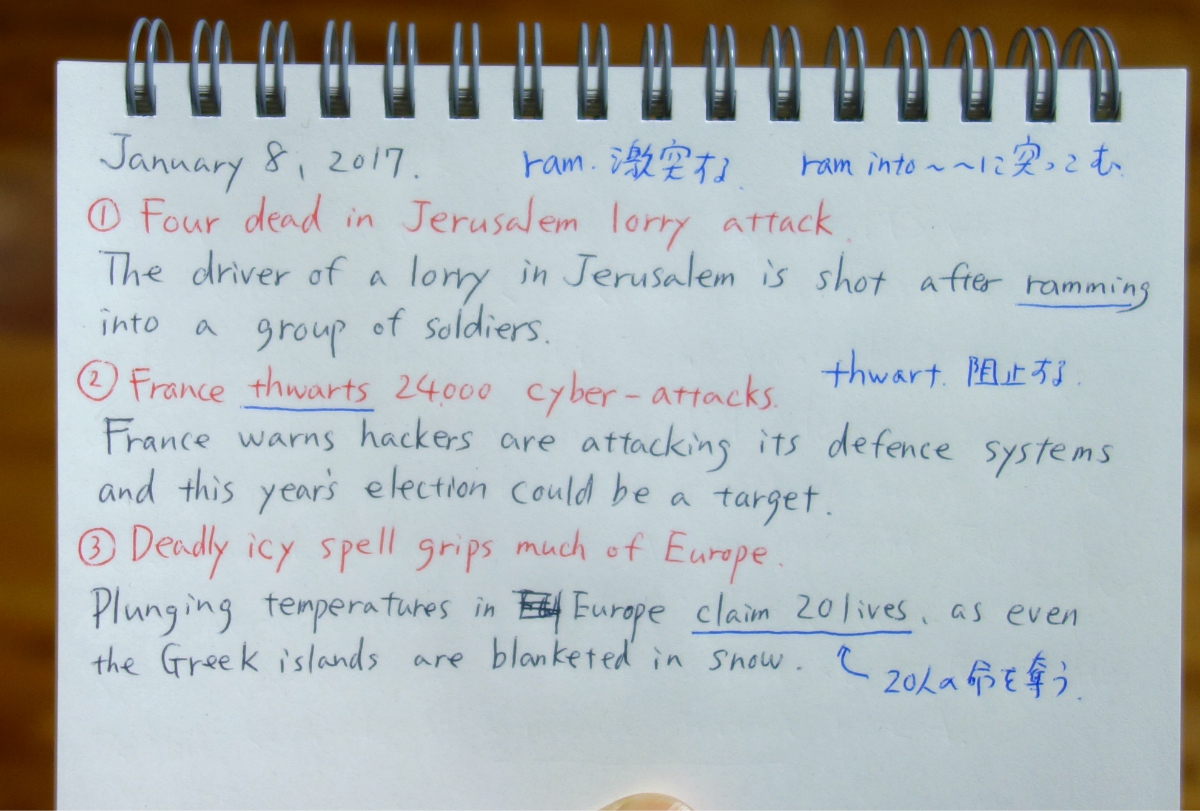 January 8, 2017. ram. 激突する. ram into ~ ~に突っこむ.
① Four dead in Jerusalem lorry attack.
The driver of a lorry in Jerusalem is shot after ramming
into a group of soldiers.
② France thwarts 24,000 cyber-attacks. thwart. 阻止する.
France warns hackers are attacking its defence systems
and this year's election could be a target.
③ Deadly icy spell grips much of Europe.
Plunging temperatures in Europe claim 20 lives, as even
the Greek islands are blanketed in snow.
20人の命を奪う.